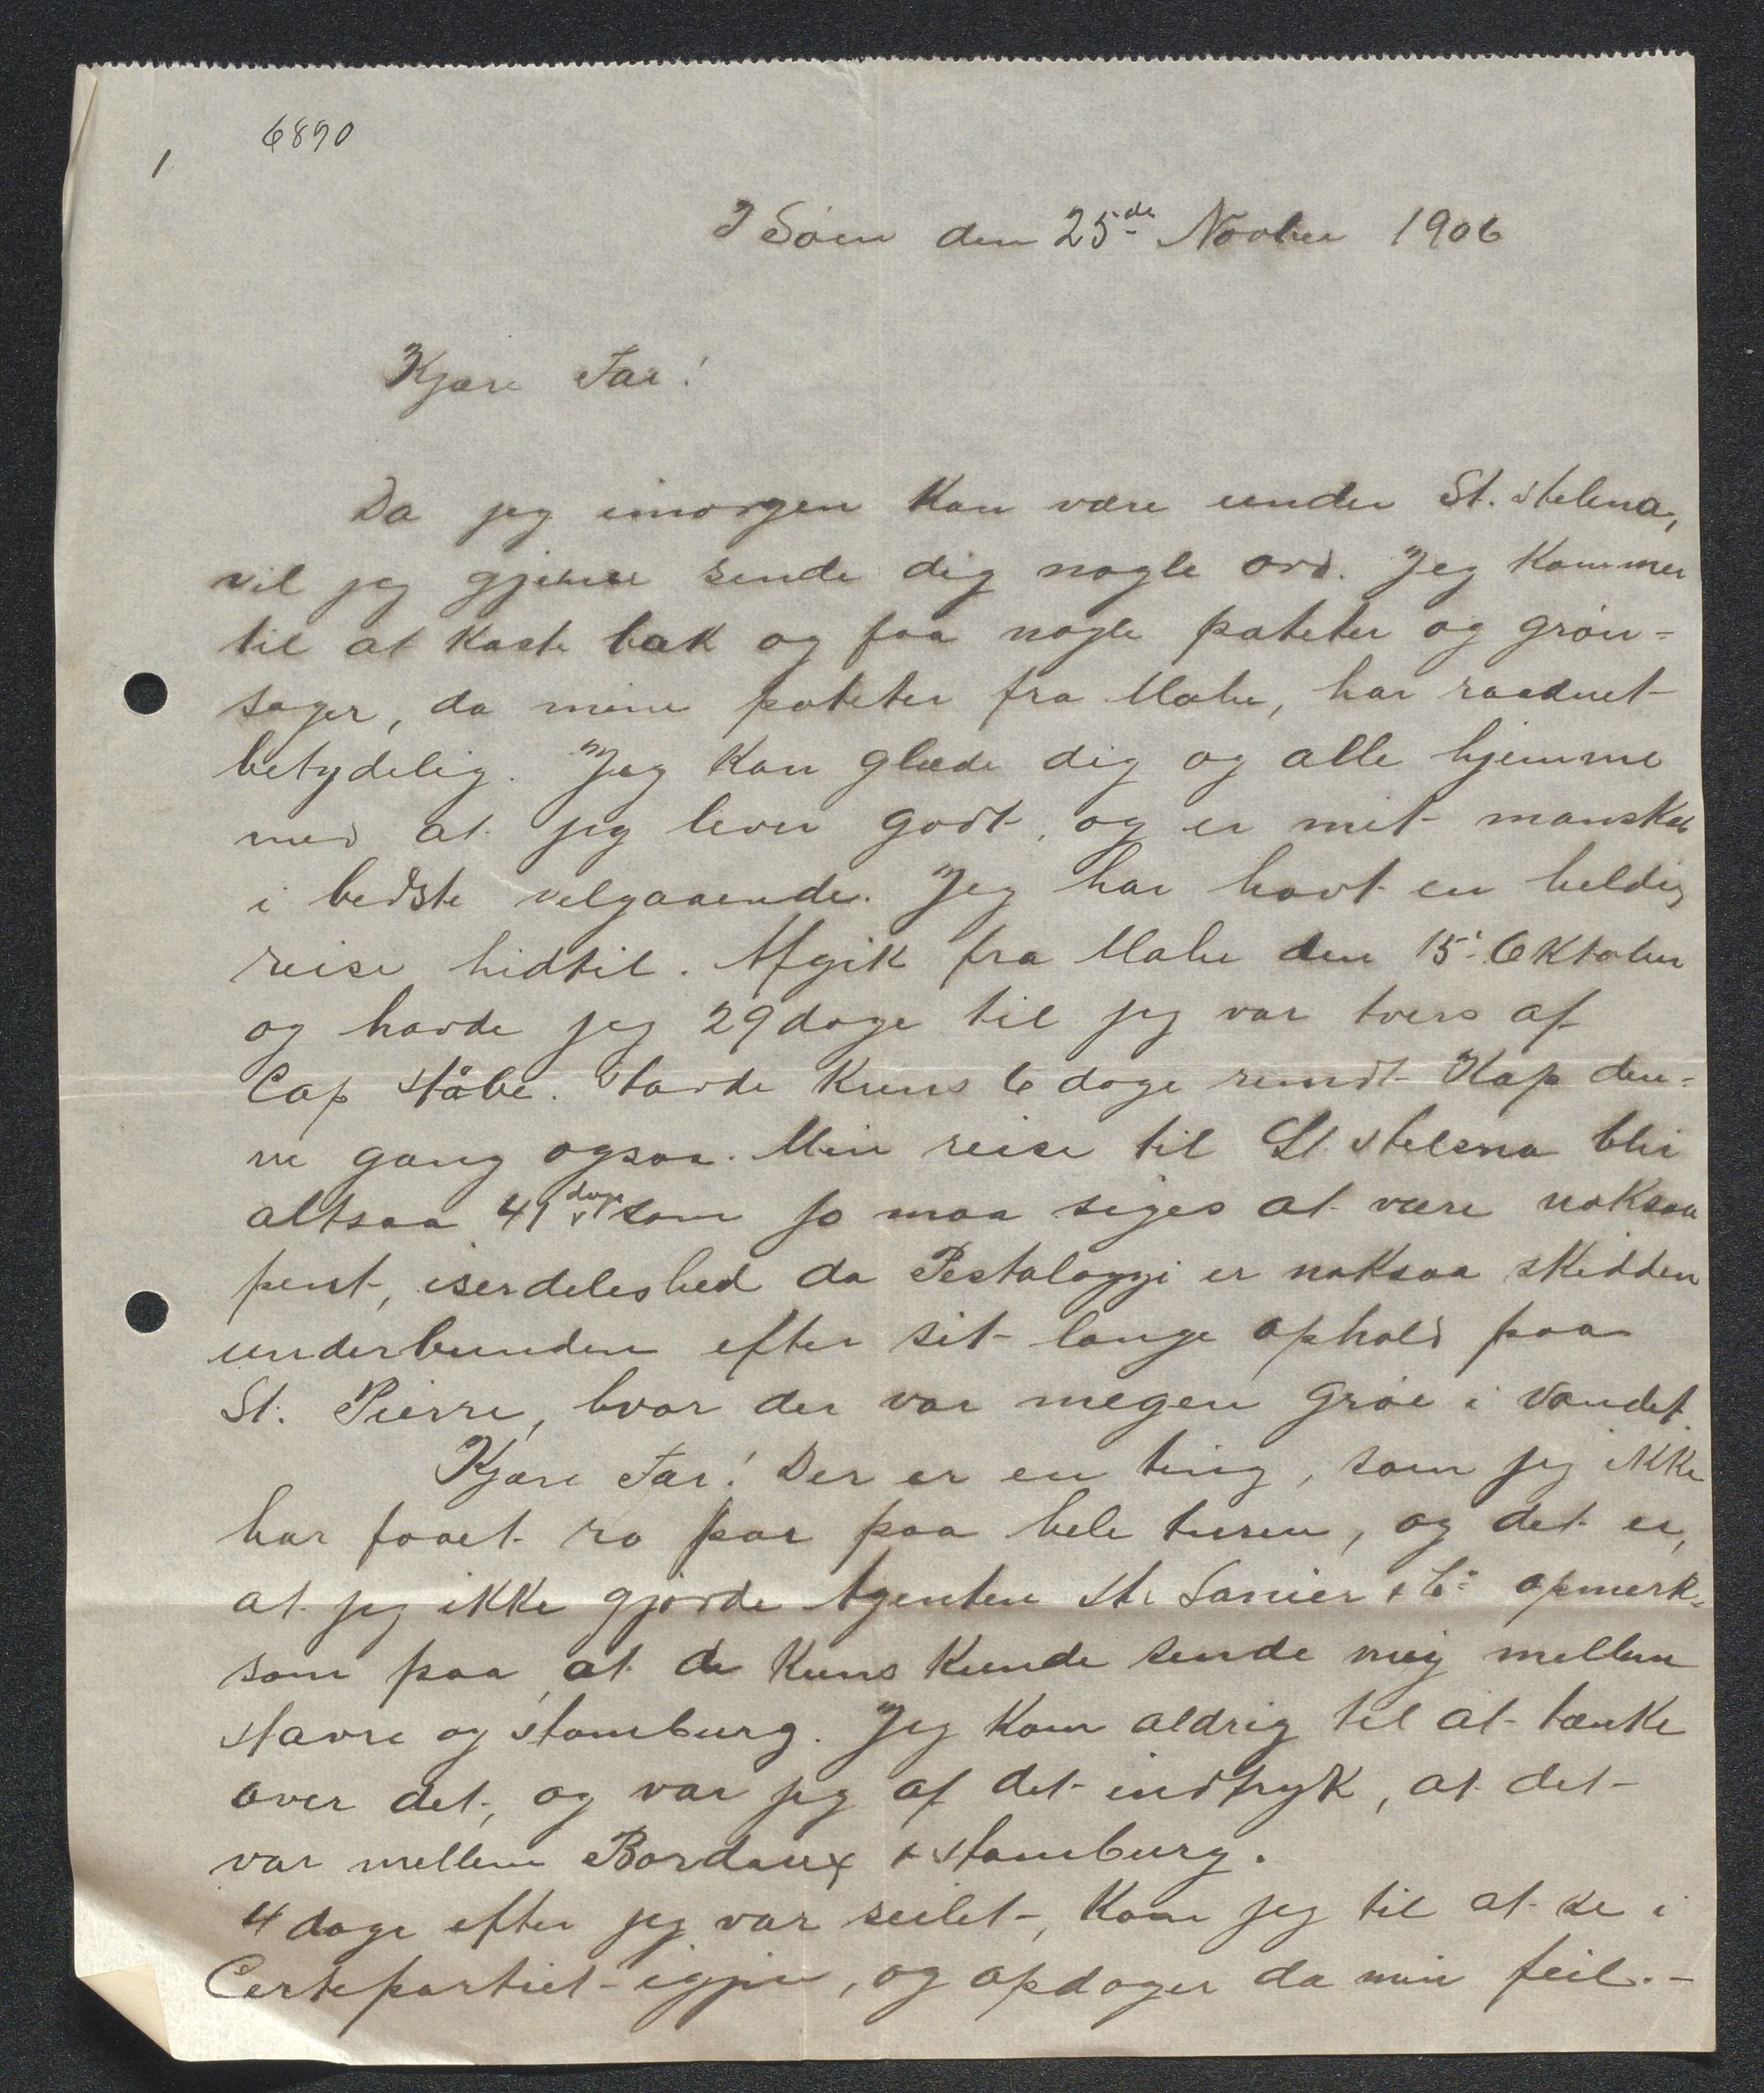 6890
1
I Søen den 25de Novber 1906
Kjære Far!
Da jeg imorgen kan være under St. Helena,
vil jeg gjerne sende dig nogle ord. Jeg kommer
til at kaste bak og faa nogle poteter og grøn=
sager, da mine poteter fra Mahe, har raadnet
betydelig. Jeg kan glæde dig og alle hjemme
med at jeg lever godt, og er mit manskab
i bedste velgaaende. Jeg har havt en heldig
reise hidtil. Afgik fra Mahe den 15: Oktober
og havde jeg 29 dage til jeg var tvers af
Cap Håbe. Havde kuns 6 dage rundt Kap den=
ne gang ogsaa. Min reise til St. Helena blir
altsaa 41 dage som jo maa siges at være noksaa
pent, iserdeleshed da Pestalozzi er noksaa skidden
underbunden efter sit lange ophold paa
St. Pierre, hvor der var megen grøe i vandet.
Kjære Far! Der er en ting, som jeg ikke
har faaet ro par paa hele turen, og det er,
at jeg ikke gjorde Agenten Hr. Sanier & Co opmerk=
som paa, at de kuns kunde sende mig mellem
Havre og Hamburg. Jeg kom aldrig til at tænke
over det, og var jeg af det indtryk, at det
var mellem Bordaux & Hamburg.
4 dage efter jeg var seilet, kom jeg til at se i
Certepartiet igjen, og opdager da min feil.-